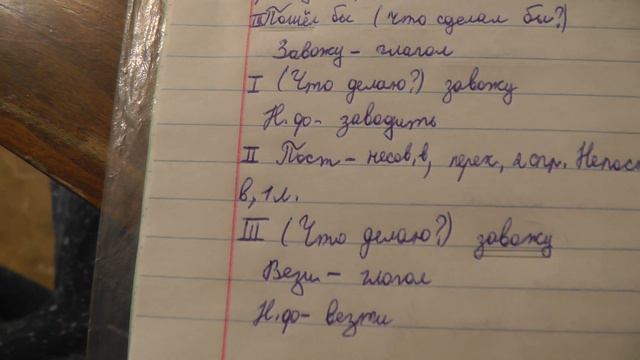 III Пошёл бы (что сделал бы?)
Завожу - глагол
I (Что делаю?) завожу
Н.фо - заводить
II Пост - несов.в, перех, 2 спр. Непос
в, 1 л.
III (Что делаю?) завожу
Вези - глагол
Н.фо - везти